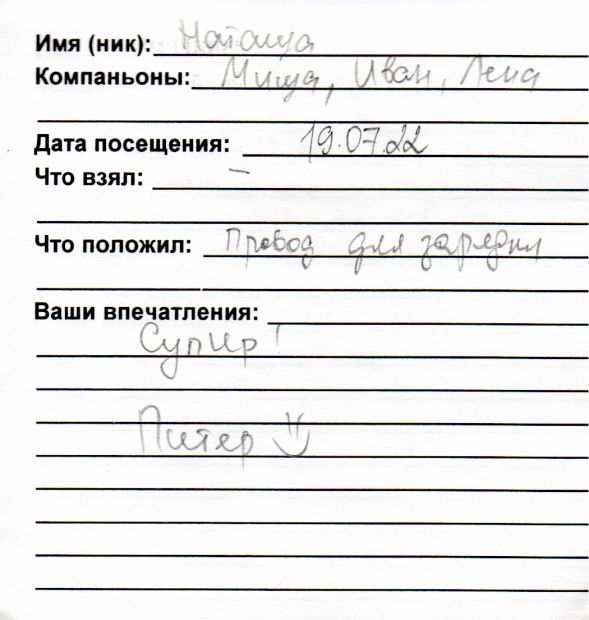 Имя (ник): Наташа
Компаньоны: Миша, Иван, Лена
Дата посещения: 19.07.22
Что взял: –
Что положил: Провод для зарядки
Ваши впечатления:
Супир!
Питер :)